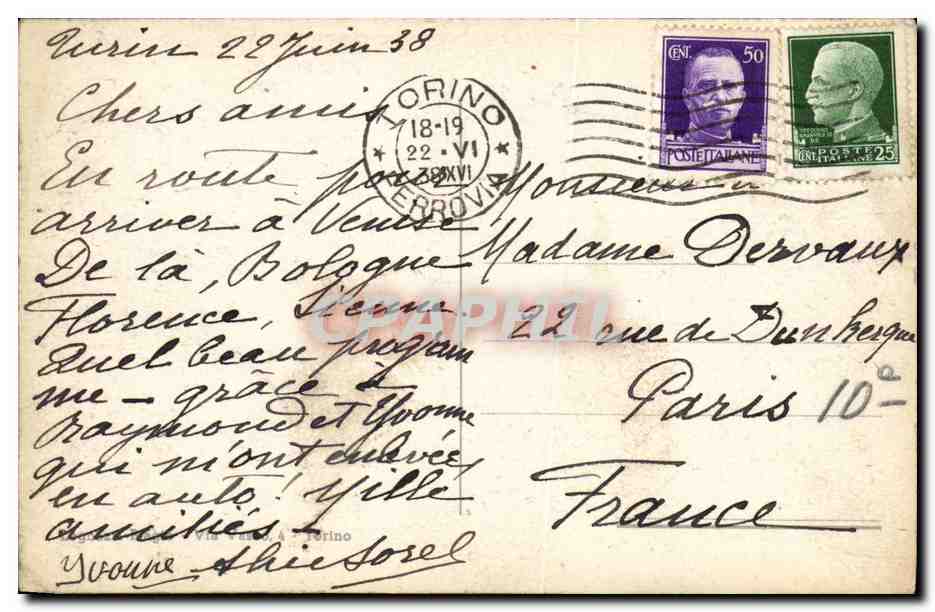 Turin 22 Juin 38
Chers amis
En route pour
arriver à Venise
De là, Bologne
Florence, Sienne.
Quel beau progam
me - grâce à
Raymond et Yvonne
qui m'ont enlevée
en auto! Mille
amitiés -
Yvonne Sorel
TORINO
18-19
22 · VI
38 XVI
FERROVIA
CENT. 50
POSTE ITALIANE
POSTE
CENT. ITALIANE 25
Monsieur
Madame Dervaux
22 rue de Dunkerque
Paris 10e
France
CPAPHIL
Via 4 - Torino